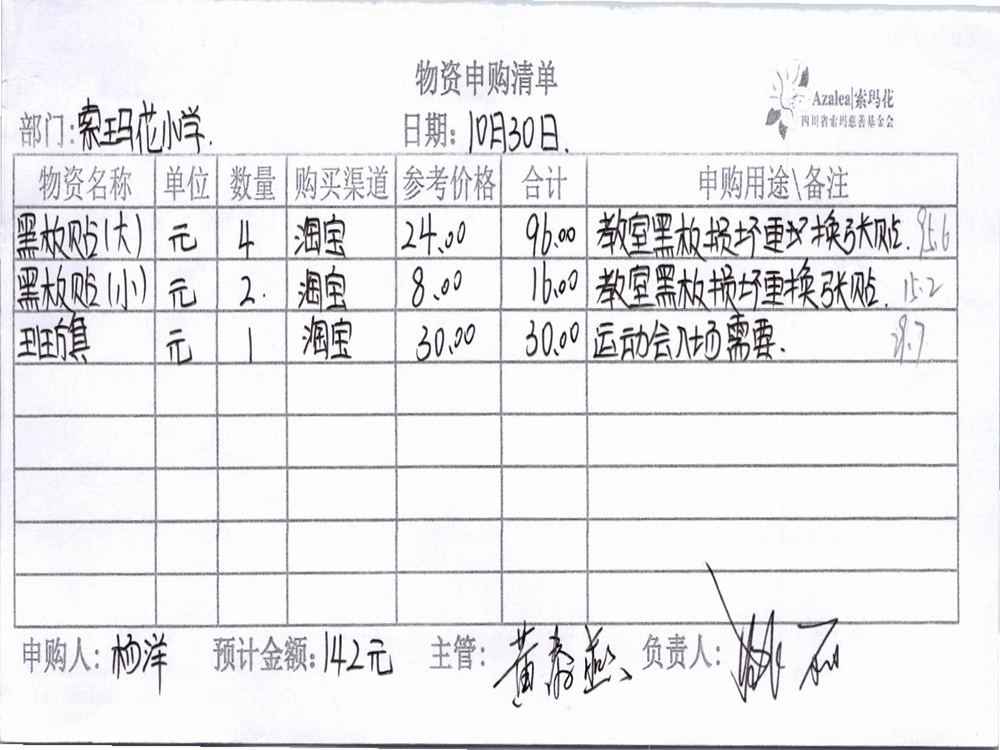 物资申购清单
Azalea|索玛花
四川省索玛慈善基金会
部门:索玛花小学. 日期:10月30日.
物资名称 单位 数量 购买渠道 参考价格 合计 申购用途\备注
黑板贴(大) 元 4 淘宝 24.00 96.00 教室黑板损坏重换张贴. 95.6
黑板贴(小) 元 2. 淘宝 8.00 16.00 教室黑板损坏重换张贴. 15.2
班旗 元 1 淘宝 30.00 30.00 运动会入场需要. 29.7
申购人:杨洋 预计金额:142元 主管: 黄 燕 负责人: